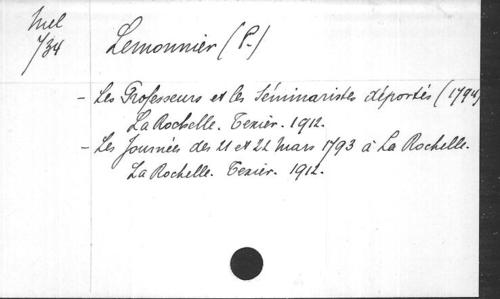 Mel
734
Lemonnier (P.)
- Les Professeurs et les Séminaristes déportés (1794)
La Rochelle. Texier. 1912.
- Les Journées des 21 et 22 Mars 1793 à La Rochelle.
La Rochelle. Texier. 1912.